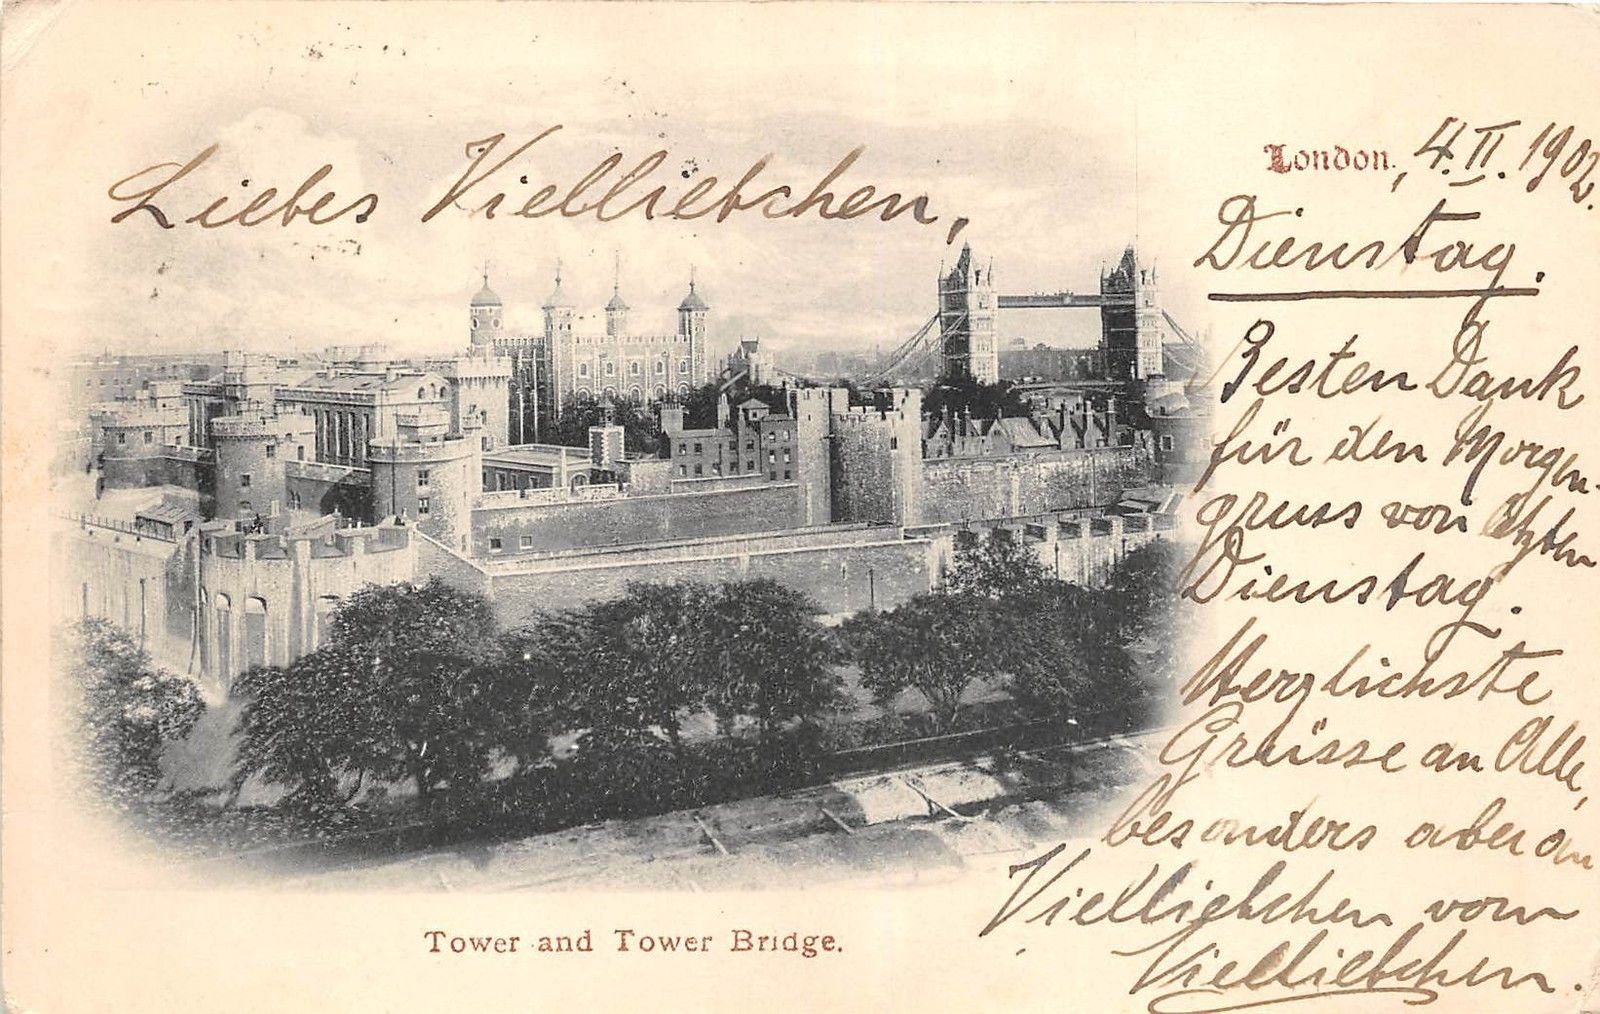 London, 4. II. 1902.
Liebes Vielliebchen,
Dienstag.
Besten Dank
für den Morgen-
gruss von letzten
Dienstag.
Herzlichste
Grüsse an Alle,
besonders aber an
Vielliebchen vom
Vielliebchen.
Tower and Tower Bridge.